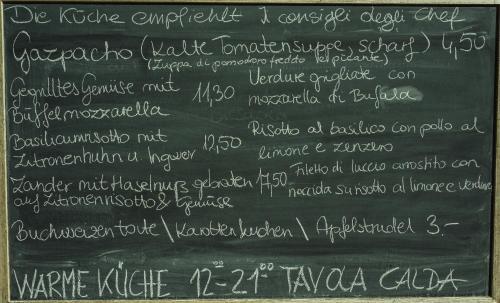 Die Küche empfiehlt I consigli degli Chef
Gazpacho (Kalte Tomatensuppe, scharf) 4,50
(Zuppa di pomodoro freddo e piccante)
Gegrilltes Gemüse mit 11,30 Verdure grigliate con
Büffelmozzarella mozzarella di Bufala
Basilicumrisotto mit 12,50 Risotto al basilico con pollo al
Zitronenhuhn u. Ingwer limone e zenzero
Zander mit Haselnuß gebraten 17,50 Filetto di luccio arrostito con
auf Zitronenrisotto & Gemüse nocciola su risotto al limone e verdure
Buchweizentorte \ Karottenkuchen \ Apfelstrudel 3.-
WARME KÜCHE 12°° - 21°° TAVOLA CALDA